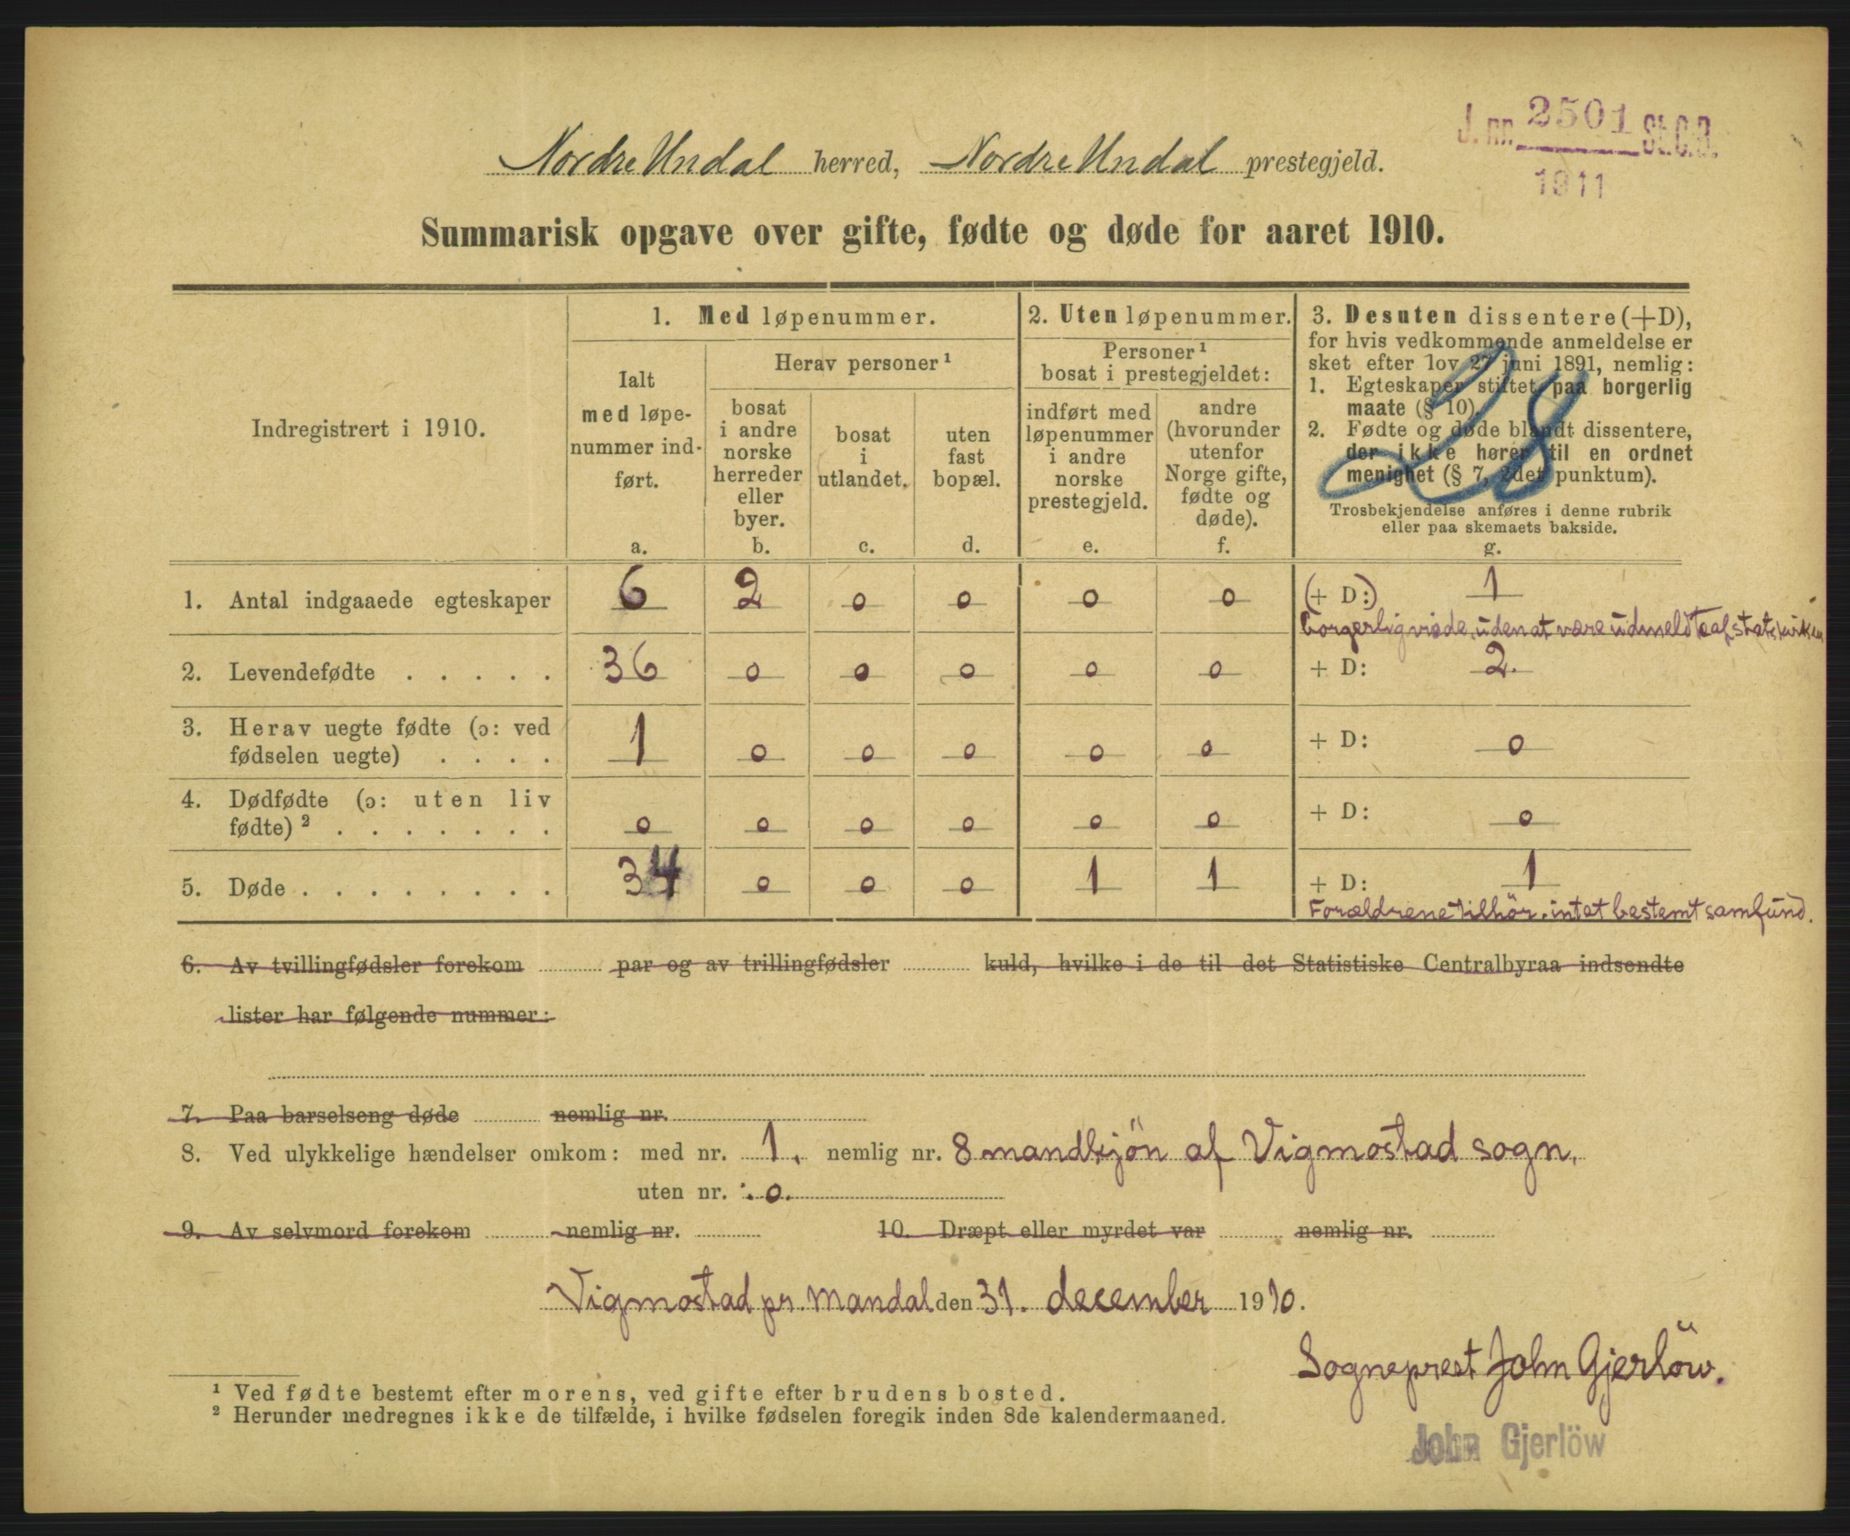 J. nr. 2501 St.C.B.
1911
Nordre Undal herred, Nordre Undal prestegjeld.
Summarisk opgave over gifte, fødte og døde for aaret 1910.
Indregistrert i 1910.
1. Med løpenummer.
Ialt
med løpe-
nummer ind-
ført.
a.
Herav personer ¹
bosat
i andre
norske
herreder
eller
byer.
b.
bosat
i
utlandet.
c.
uten
fast
bopæl.
d.
2. Uten løpenummer.
Personer ¹
bosat i prestegjeldet:
indført med
løpenummer
i andre
norske
prestegjeld.
e.
andre
(hvorunder
utenfor
Norge gifte,
fødte og
døde).
f.
3. Desuten dissentere (+D),
for hvis vedkommende anmeldelse er
sket efter lov 27 juni 1891, nemlig:
1. Egteskaper stiftet paa borgerlig
maate (§ 10).
2. Fødte og døde blandt dissentere,
der ikke hører til en ordnet
menighet (§ 7, 2det punktum).
Trosbekjendelse anføres i denne rubrik
eller paa skemaets bakside.
g.
28
1. Antal indgaaede egteskaper 6 2 0 0 0 0 (+ D:) 1
borgerlig viede, uden at være udmeldte af statskirken
2. Levendefødte . . . . . 36 0 0 0 0 0 + D: 2.
3. Herav uegte fødte (ɔ: ved
fødselen uegte) . . . . 1 0 0 0 0 0 + D: 0
4. Dødfødte (ɔ: uten liv
fødte) ² . . . . . . . 0 0 0 0 0 0 + D: 0
5. Døde . . . . . . . . 34 0 0 0 1 1 + D: 1
Forældrene tilhör intet bestemt samfund.
6. Av tvillingfødsler forekom par og av trillingfødsler kuld, hvilke i de til det Statistiske Centralbyraa indsendte
lister har følgende nummer:
7. Paa barselseng døde nemlig nr.
8. Ved ulykkelige hændelser omkom: med nr. 1. nemlig nr. 8 mandkjön af Vigmostad sogn.
uten nr. 0.
9. Av selvmord forekom nemlig nr. 10. Dræpt eller myrdet var nemlig nr.
Vigmostad pr. Mandal den 31. december 1910.
Sogneprest John Gjerlöw.
John Gjerlöw
¹ Ved fødte bestemt efter morens, ved gifte efter brudens bosted.
² Herunder medregnes ikke de tilfælde, i hvilke fødselen foregik inden 8de kalendermaaned.